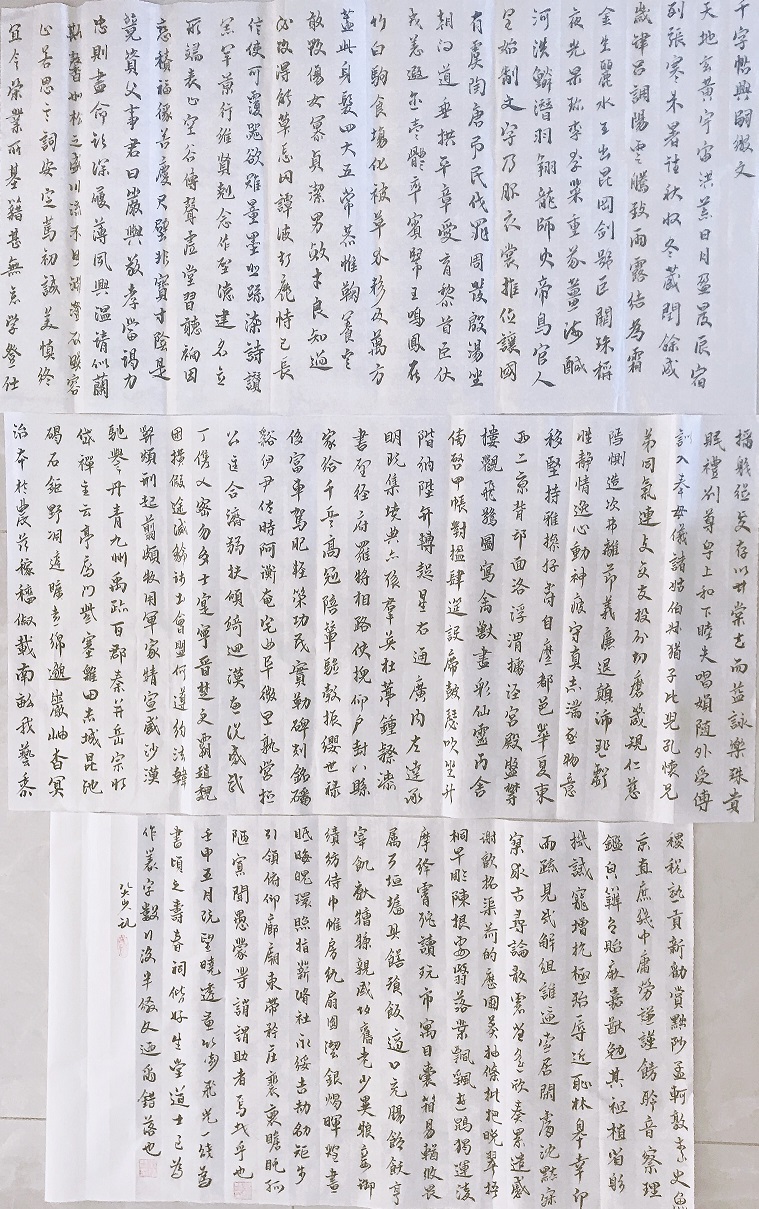 千字帖興嗣撰文
天地玄黃宇宙洪荒日月盈昃辰宿
列張寒來暑往秋收冬藏閏餘成
歲律呂調陽雲騰致雨露結為霜
金生麗水玉出崑岡劍號巨闕珠稱
夜光果珍李柰菜重芥薑海鹹
河淡鱗潛羽翔龍師火帝鳥官人
皇始制文字乃服衣裳推位讓國
有虞陶唐弔民伐罪周發殷湯坐
朝問道垂拱平章愛育黎首臣伏
戎羌遐邇壹體率賓歸王鳴鳳在
竹白駒食場化被草木賴及萬方
蓋此身髮四大五常恭惟鞠養豈
敢毀傷女慕貞潔男效才良知過
必改得能莫忘罔談彼短靡恃己長
信使可覆器欲難量墨悲絲染詩讚
羔羊景行維賢剋念作聖德建名立
形端表正空谷傳聲虛堂習聽禍因
惡積福緣善慶尺璧非寶寸陰是
競資父事君曰嚴與敬孝當竭力
忠則盡命臨深履薄夙興溫清似蘭
斯馨如松之盛川流不息淵澄取暎容
止若思言詞安定篤初誠美慎終
宜令榮業所基籍甚無竟學登仕
攝職從政存以甘棠去而益詠樂殊貴
賤禮別尊卑上和下睦夫唱婦隨外受傅
訓入奉母儀諸姑伯叔猶子比兒孔懷兄
弟同氣連枝交友投分切磨箴規仁慈
隱惻造次弗離節義廉退顛沛匪虧
性靜情逸心動神疲守真志滿逐物意
移堅持雅操好爵自縻都邑華夏東
西二京背邙面洛浮渭據涇宮殿盤鬱
樓觀飛驚圖寫禽獸畫彩仙靈丙舍
傍啟甲帳對楹肆筵設席鼓瑟吹笙升
階納陛弁轉疑星右通廣內左達承
明既集墳典亦聚群英杜稿鍾隸漆
書壁經府羅將相路俠槐卿戶封八縣
家給千兵高冠陪輦驅轂振纓世祿
侈富車駕肥輕策功茂實勒碑刻銘磻
谿伊尹佐時阿衡奄宅曲阜微旦孰營桓
公匡合濟弱扶傾綺迴漢惠說感武
丁俊乂密勿多士寔寧晉楚更霸趙魏
困橫假途滅虢踐土會盟何遵約法韓
弊煩刑起翦頗牧用軍最精宣威沙漠
馳譽丹青九州禹跡百郡秦并岳宗恒
岱禪主云亭雁門紫塞雞田赤城昆池
碣石鉅野洞庭曠遠綿邈巖岫杳冥
治本於農茲稼穡俶載南畝我藝黍
稷稅熟貢新勸賞黜陟孟軻敦素史魚
秉直庶幾中庸勞謙謹敕聆音察理
鑑貌辨色貽厥嘉猷勉其祗植省躬
譏誡寵增抗極殆辱近恥林皋幸即
兩疏見機解組誰逼索居閑處沉默寂
寥求古尋論散慮逍遙欣奏累遣慼
謝歡招渠荷的歷園莽抽條枇杷晚翠梧
桐早彫陳根委翳落葉飄颻遊鵾獨運凌
摩絳霄耽讀玩市寓目囊箱易輶攸畏
屬耳垣墻具膳飡飯適口充腸飽飫烹
宰飢厭糟糠親戚故舊老少異糧妾御
績紡侍巾帷房紈扇圓潔銀燭煒煌晝
眠晦魄環照指薪修祜永綏吉劭矩步
引領俯仰廊廟束帶矜莊徘徊瞻眺孤
陋寡聞愚蒙等誚謂助者焉哉乎也
壬申五月既望曉透一為
書頌之壽春祠好生堂道士已為
作字數行後半錯落也